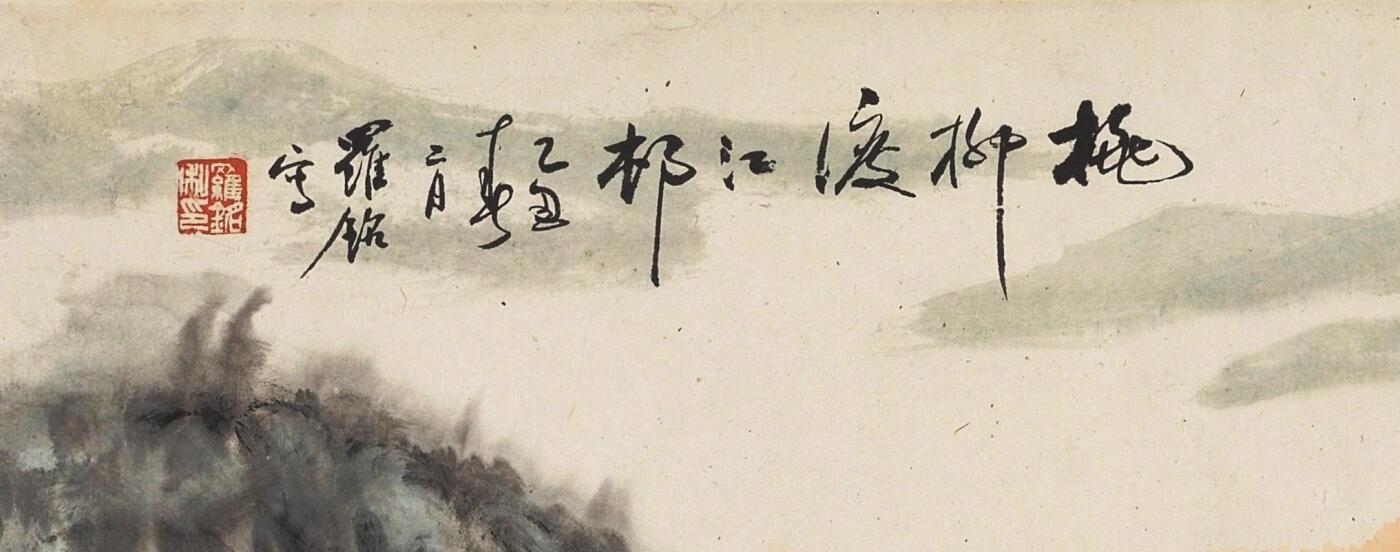 桃柳渡江邨
乙丑
春
二月
羅銘
寫
羅銘